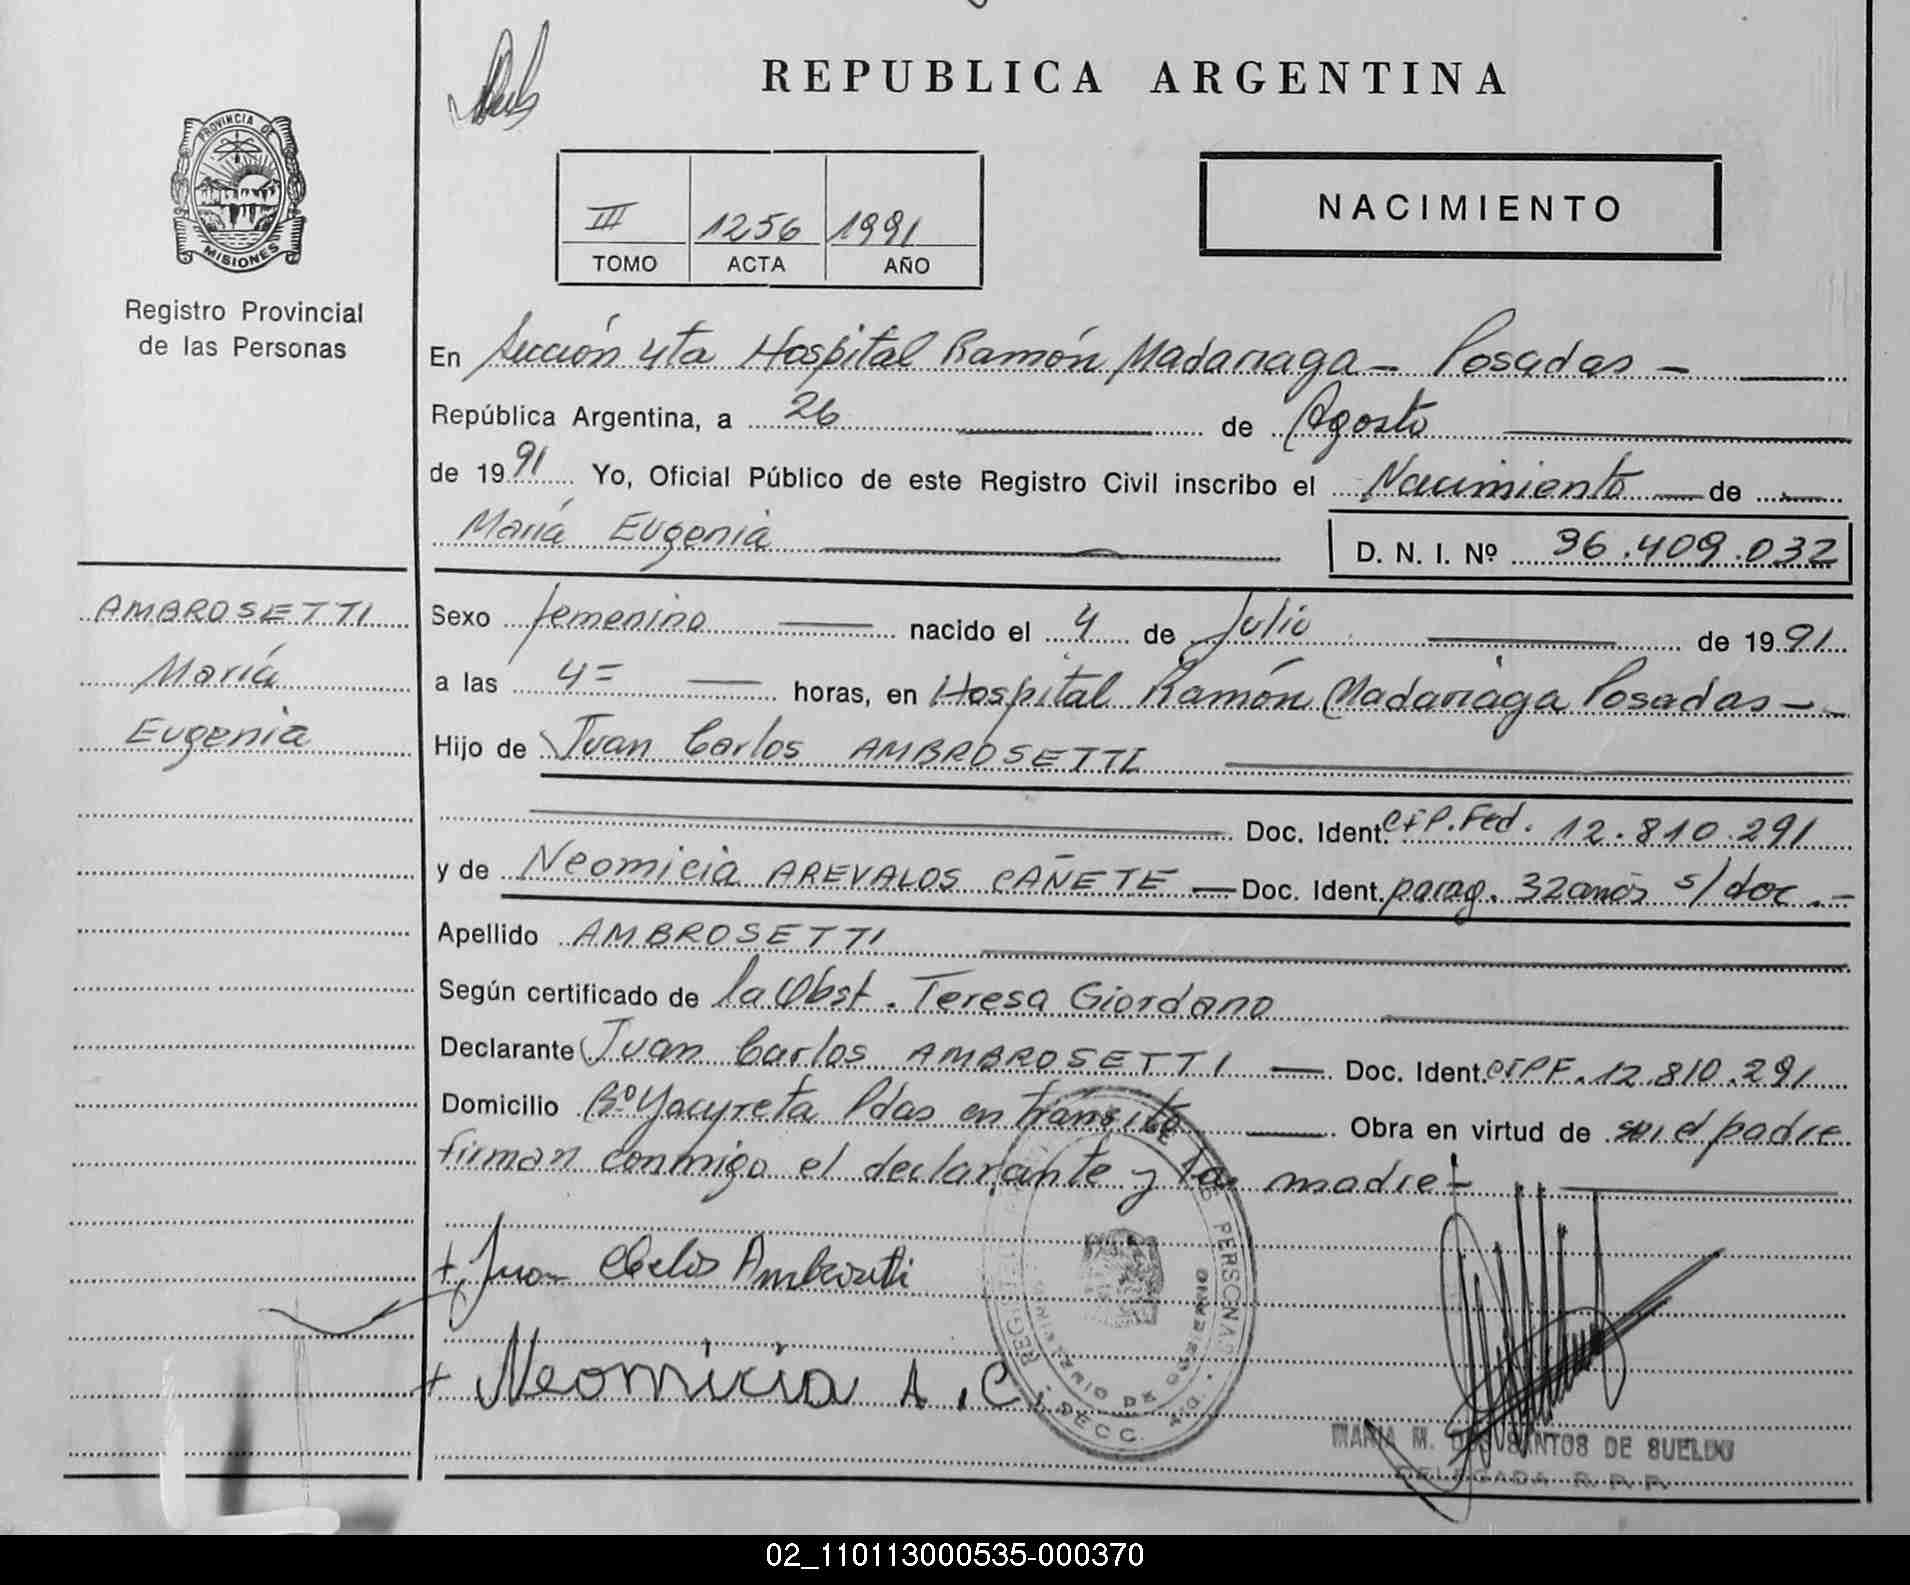 REPUBLICA ARGENTINA
PROVINCIA DE
MISIONES
Registro Provincial
de las Personas
III 1256 1991
TOMO ACTA AÑO
NACIMIENTO
En Sección 4ta Hospital Ramón Madariaga - Posadas -
República Argentina, a 26 de Agosto
de 1991 Yo, Oficial Público de este Registro Civil inscribo el Nacimiento de
María Eugenia
D. N. I. Nº 36.409.032
AMBROSETTI
María
Eugenia
Sexo femenino nacido el 4 de Julio de 1991
a las 4= horas, en Hospital Ramón Madariaga Posadas -
Hijo de Juan Carlos AMBROSETTI
Doc. Ident. CIP.Fed. 12.810.291
y de Neomicia AREVALOS CAÑETE - Doc. Ident. parag. 32 años s/doc.-
Apellido AMBROSETTI
Según certificado de la Obst. Teresa Giordano
Declarante Juan Carlos AMBROSETTI - Doc. Ident. CIPF. 12.810.291
Domicilio Bº Yacyreta Pdas en transito Obra en virtud de ser el padre
firman conmigo el declarante y la madre-
+ Juan Carlos Ambrosetti
+ Neomicia A. C.
PERSONAS
MINISTERIO DE GOBIERNO
SECC. 4ta.
MARIA M. DOS SANTOS DE SUELDO
DELEGADA R. P. P.
02_110113000535-000370